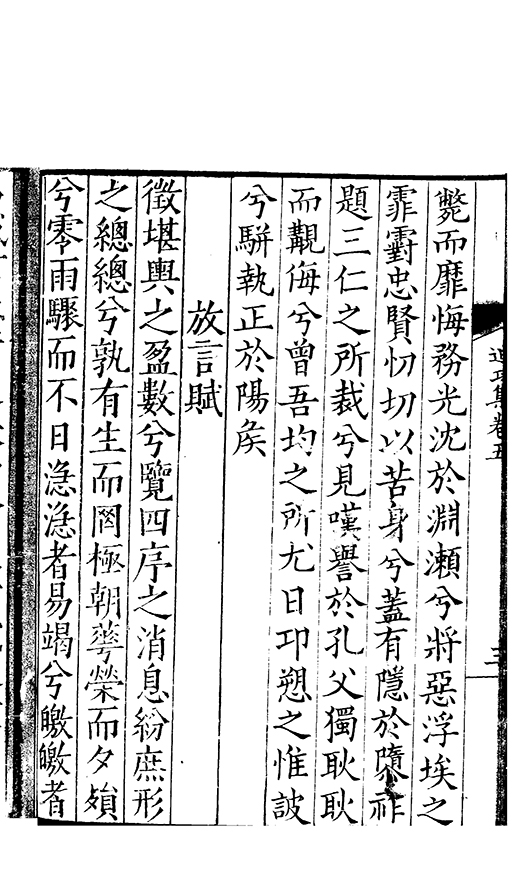 斃而靡悔務光沈於淵瀨兮將惡浮埃之
霏霨忠賢忉切以苦身兮蓋有隱於隳祚
題三仁之所裁兮見嘆譽於孔父獨耿耿
而覯侮兮曾吾均之所尤日卭愬之惟詖
兮駢執正於陽矦
放言賦
徵堪輿之盈數兮覽四序之消息紛庶形
之總總兮孰有生而罔極朝蕚榮而夕䫇
兮零雨驟而不日㴔㴔者易竭兮皦皦者
集卷五
三